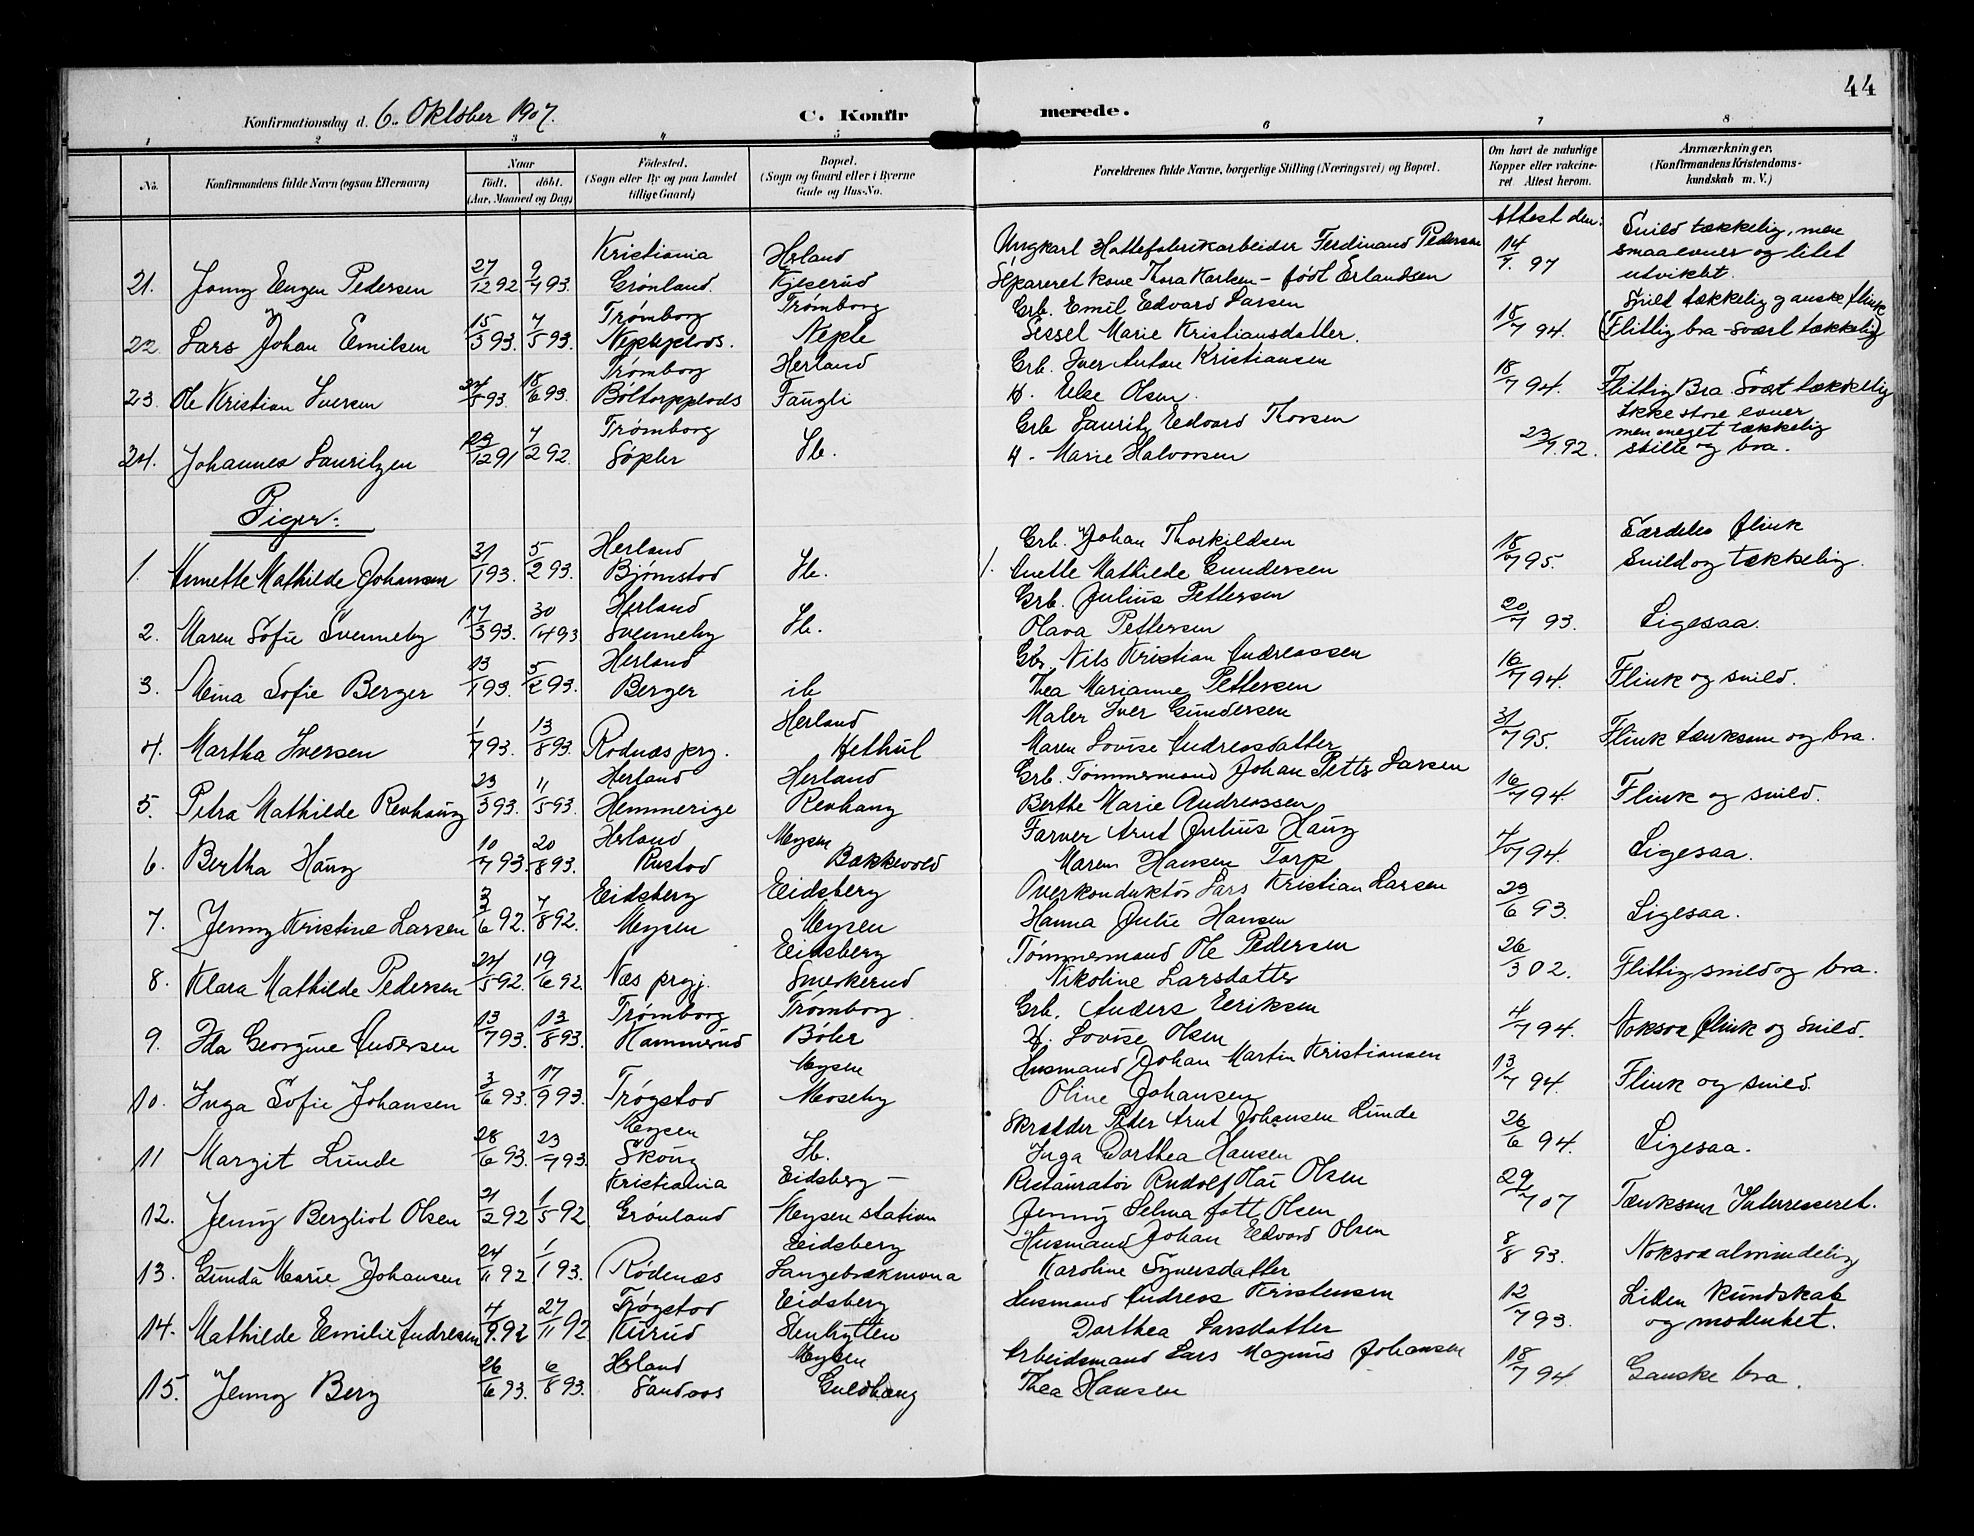 44
Konfirmationsdag d. 6. Oktober 1907.
C. Konfirmerede.
1 2 3 4 5 6 7 8
No. Konfirmandens fulde Navn (ogsaa Efternavn) Naar födt. döbt. (Aar, Maaned og Dag) Födested. (Sogn eller By og paa Landet tillige Gaard) Bopæl. (Sogn og Gaard eller i Byerne Gade og Hus-No. Forældrenes fulde Navne, borgerlige Stilling (Næringsvei) og Bopæl. Om havt de naturlige Kopper eller vakcineret Attest herom. Anmærkninger. (Konfirmandens Kristendomskundskab m. V.)
Attest den:
Kristiania Herland Ungkarl Hattefabrikarbeider Ferdinand Pedersen Snild tækkelig, men
21. Jonny Eugen Pedersen 27/12 92 9/4 93. Grönland. Kjeserud Separeret Kone Thora Karlsen - födt Erlandsen 14/9. 97 smaa evner og litet utviklet.
Trömborg Trömborg Grb. Emil Edvard Larsen Snild tækkelig ganske flink
22 Lars Johan Emilsen 15/3 93. 7/5 93. Nepleplads. Neple Sessel Marie Kristiansdatter. 18/7 94. (Flittig bra - svært tækkelig)
Trömborg Herland Grb. Iver Anton Kristiansen
23. Ole Kristian Iversen 24/5 93. 18/6 93. Böltorpplads Faugli H. Else Olsen. 18/7 94. Flittig Bra Svært tækkelig
Trömborg Grb Lauritz Edvard Thorsen Ikke store evner
24. Johannes Lauritzen 23/12 91 7/2 92. Söpler Ib. H. Marie Halvorsen 23/9. 92. men meget tækkelig stille og bra.
Piger:
Herland Grb. Johan Thorkildsen Særdeles flink
1. Annette Mathilde Johansen 31/1 93. 5/2 93. Bjørnstad Ib. 1. Anette Mathilde Gundersen 18/7 95. Snild og tækkelig.
Herland Grb. Julius Pettersen
2. Maren Sofie Svenneby 17/3 93. 30/4 93 Svenneby Ib. Olava Pettersen 20/7 93. Ligesaa.
Herland Gbr. Nils Kristian Andreassen
3. Mina Sofie Berger 13/1 93. 5/2 93. Berger ib Thea Marianne Pettersen 16/7 94. Flink og snild.
Herland Maler Iver Gundersen
4. Martha Iversen 1/7 93. 13/8 93. Rødnæs prg. Hethul Maren Lovise Andreasdatter 31/7 95. Flink tænksom og bra.
Herland Herland Grb. Tømmermand Johan Petter Larsen
5. Petra Mathilde Revhaug 23/3 93. 11/5 93. Hemmerige Revhaug Berthe Marie Andreassen 16/7 94. Flink og snild.
Herland Mysen Farver Arnt Julius Haug
6. Bertha Haug 10/7 93. 20/8 93. Rustad Bakkevold Maren Hansen Torp 4/7 94. Ligesaa.
Eidsberg Eidsberg Overkonduktör Lars Kristian Larsen
7. Jenny Kristine Larsen 3/6 92. 7/8 92. Mysen Mysen Hanna Julie Hansen 23/6 93. Ligesaa.
Eidsberg Tømmermand Ole Pedersen
8. Klara Mathilde Pedersen 24/5 92. 19/6 92 Næs prgj. Smerkerud Nikoline Larsdatter 26/3 02. Flittig snild og bra.
Trömborg Trömborg Grb. Anders Eriksen
9. Ida Georgine Andersen 13/7 93. 13/8 93. Kammerud Böler H. Lovise Olsen 4/7 94. Noksaa flink og snild.
Mysen Husmand Johan Martin Kristiansen
10. Inga Sofie Johansen 3/6 93. 17/9 93. Trögstad Moseby Oline Johansen 13/7 94. Flink og snild.
Mysen Skrædder Peder Arnt Johansen Lunde
11 Margit Lunde 28/6 93. 23/7 93. Skoug Ib. Inga Dorthea Hansen 26/6 94. Ligesaa.
Kristiania Eidsberg - Restauratör Rudolf Olsen
12. Jenny Bergliot Olsen 21/2 92 1/5 92 Grönland Mysen station Jenny Selma født Olsen 29/7 07 Tænksom Interesseret.
Eidsberg Husmand Johan Edvard Olsen
13. Gunda Marie Johansen 24/11 92 1/1 93. Rödenæs Langebrækmona Karoline Synersdatter 8/8 93. Noksaa almindelig
Trögstad Eidsberg Husmand Andreas Kristensen Liden Kundskab
14. Mathilde Emilie Andresen 4/9. 92 27/11 92 Kirud Stenhytten Dorthea Larsdatter 12/7 93. og modenhet.
Herland Mysen Arbeidsmand Lars Magnus Johansen
15. Jenny Berg 26/6 93. 6/8 93. Sandaas Guldhaug Thea Hansen 18/7 94. Ganske bra.